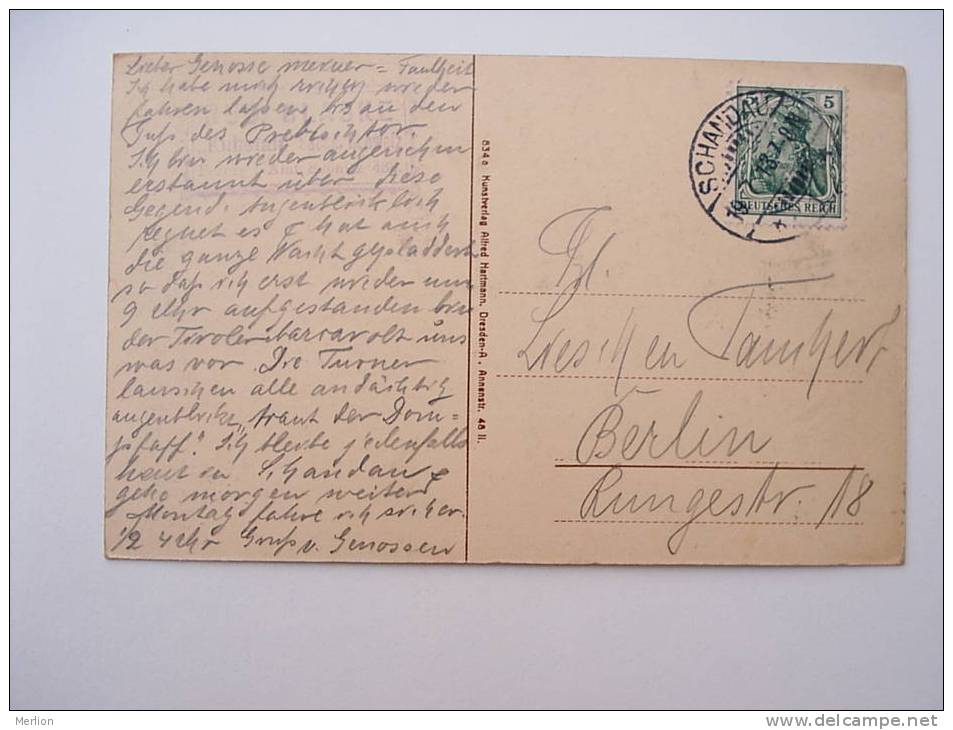 Lieber Genosse meiner = Faulheit
Ich habe mich wieder
fahren lassen bis an den
Fuß des Prebischtor.
Ich bin wieder
erstaunt über diese
Gegend. Augenblicklich
regnet es & hat auch
die ganze Nacht gepladdert
so daß ich erst wieder um
9 Uhr aufgestanden bin
der Tiroler uns
was vor. Die Turner
lauschen alle andächtig
augenblickl. „traut der Dom=
pfaff". Ich bleibe jedenfalls
heut in Schandau &
gehe morgen weiter
Montag fahre ich sicher.
1/2 4 Uhr Gruß v. Genossen
834a Kunstverlag Alfred Hartmann, Dresden-A., Annenstr. 48 II.
SCHANDAU
18.7.
5
DEUTSCHES REICH
Frl.
Lieschen
Berlin
Rungestr. 18
Merlion
www.delcampe.net